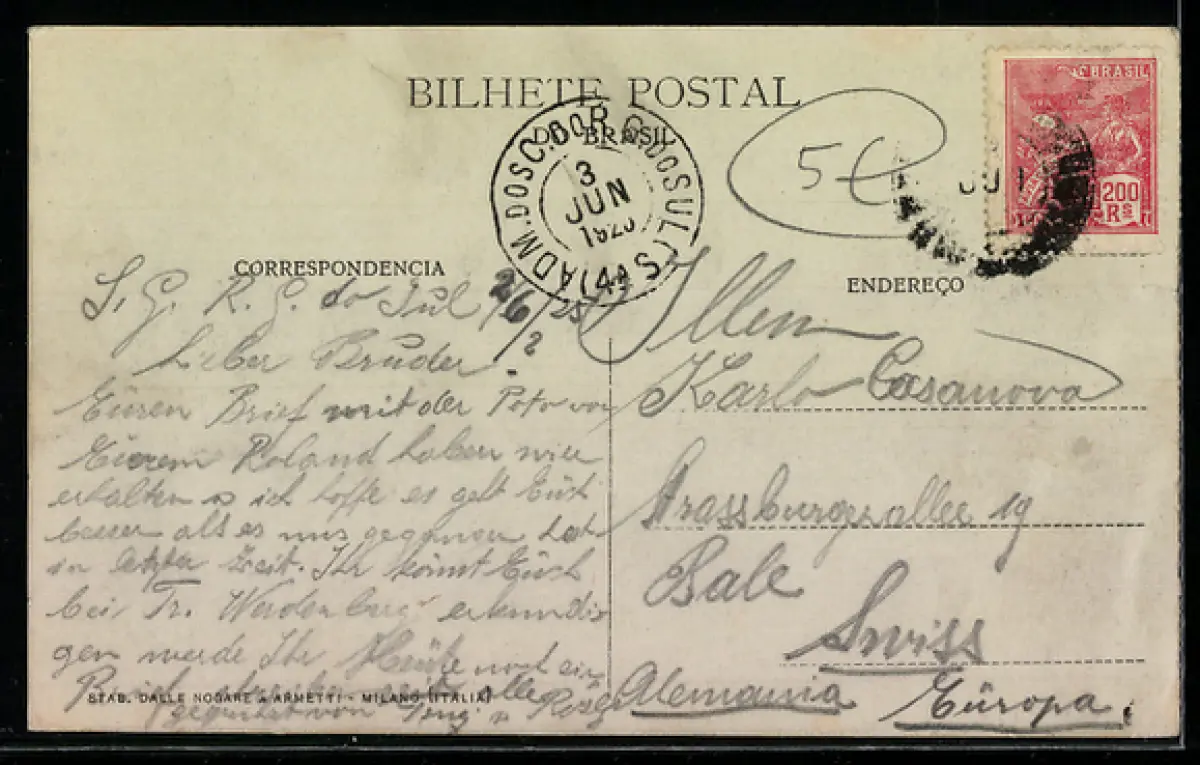 BILHETE POSTAL
DO BRASIL
ADM. DOS C. DO R. G. DO SUL
3
JUN
(4ª S
5
BRASIL
200
Rs
JUN
CORRESPONDENCIA
ENDEREÇO
S. G. R. G. do Sul 2/6/25
Lieber Bruder.
Euren Brief mit der Foto von
Eurem Roland haben wir
erhalten u ich hoffe es geht Euch
besser als es uns gegangen hat
in letzter Zeit. Ihr könnt Euch
bei Fr. Werdenberg erkundi-
gen werde Ihr Heute noch ein
alle
gegrüsst von
Karlo Casanova
Strassburgerallee 19
Bale
Swiss
Alemania Európa.
STAB. DALLE NOGARE & ARMETTI - MILANO (ITALIA)